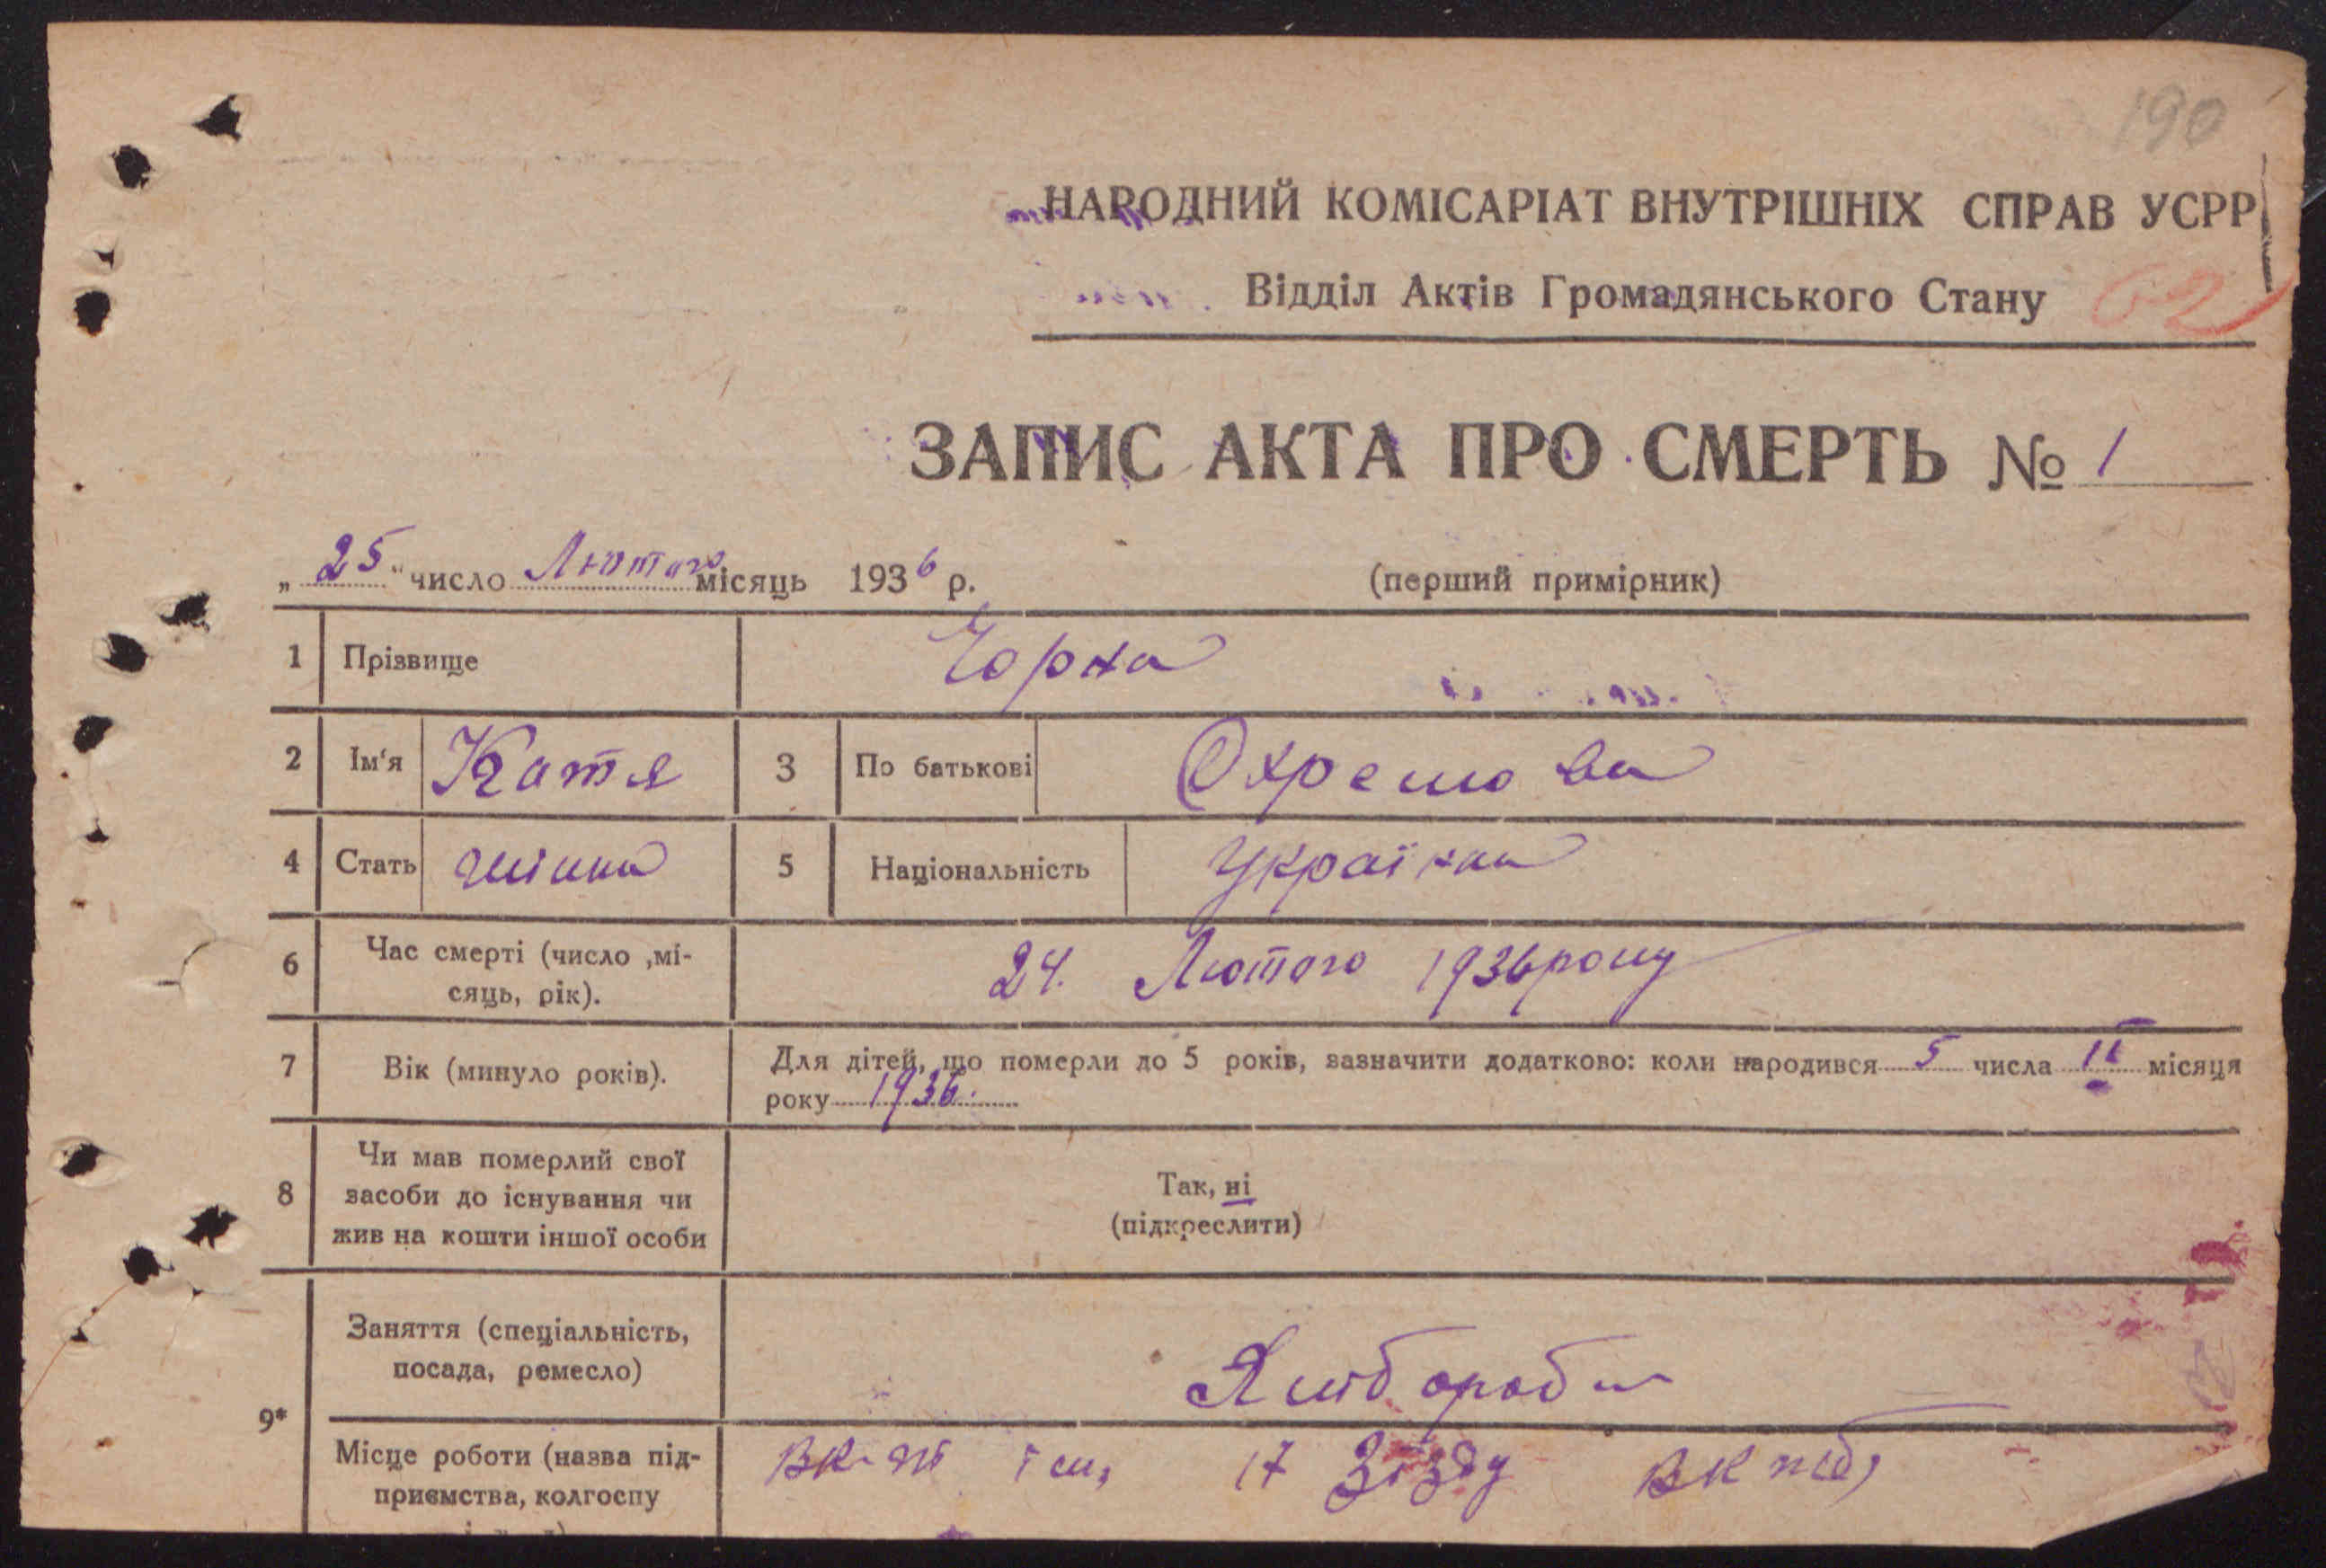 190
НАРОДНИЙ КОМІСАРІАТ ВНУТРІШНІХ СПРАВ УСРР
Відділ Актів Громадянського Стану 62
ЗАПИС АКТА ПРО СМЕРТЬ № 1
„25" число Лютого місяць 1936 р. (перший примірник)
1 Прізвище Чорна
2 Ім'я Катя 3 По батькові Охремова
4 Стать жіноча 5 Національність Українка
6 Час смерті (число ,мі-
сяць, рік). 24. Лютого 1936 року
7 Вік (минуло років). Для дітей, що померли до 5 років, зазначити додатково: коли народився 5 числа II місяця
року 1936.
8 Чи мав померлий свої
засоби до існування чи
жив на кошти іншої особи
Так, ні
(підкреслити)
9* Заняття (спеціальність,
посада, ремесло) Хлібороб
Місце роботи (назва під-
приємства, колгоспу
ім. 17 Зізду ВКПб)